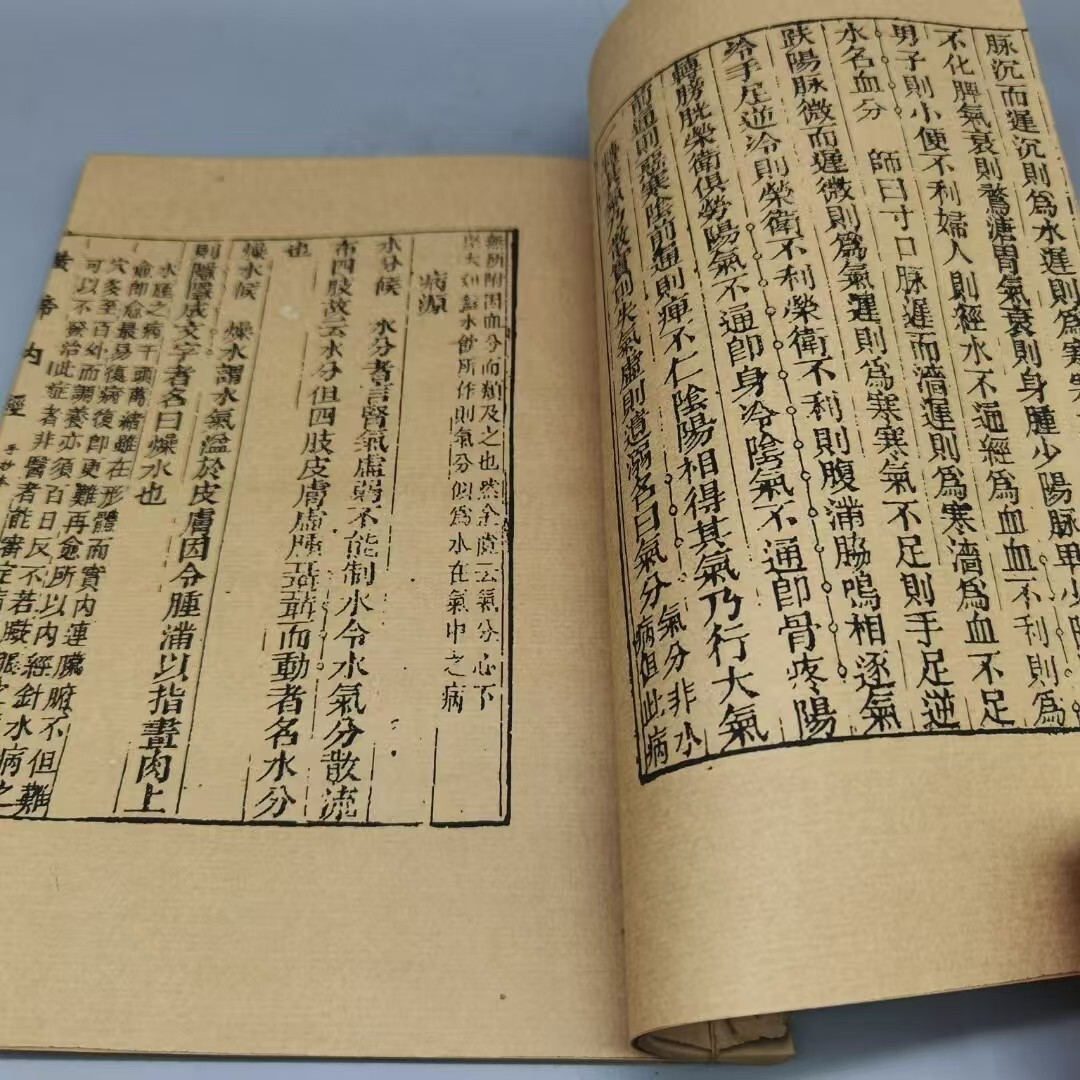 脉沉而遲沉則爲水遲則爲寒
不化脾氣衰則鶩溏胃氣衰則身腫少陽脉卑少陰
男子則小便不利婦人則經水不通經爲血血不利則爲
水名血分　師曰寸口脉遲而濇遲則爲寒濇爲血不足
趺陽脉微而遲微則爲氣遲則爲寒寒氣不足則手足逆
冷手足逆冷則榮衛不利榮衛不利則腹滿脇鳴相逐氣
轉膀胱榮衛俱勞陽氣不通即身冷陰氣不通即骨疼陽
前通則惡寒陰前通則痺不仁陰陽相得其氣乃行大氣
轉其氣乃散實則失氣虛則遺溺名曰氣分
氣分非水
病但此病
無所附因血分而類及之也然金匱云氣分心下
堅大如盤水飲所作則氣分似爲水在氣中之病
病源
水分候　水分者言腎氣虛弱不能制水令水氣分散流
布四肢故云水分但四肢皮膚虛腫聶聶而動者名水分
也
燥水候　燥水謂水氣溢於皮膚因令腫滿以指畫肉上
則隱隱成文字者名曰燥水也
水腫之病千頭萬緒雖在形體而實內連臟腑不但難
愈即愈最易復病復即更難再愈所以內經針水病之
穴多至百外而調養亦須百日反不若
可以不發治此症者非醫者能審症
黃帝內經
手抄本